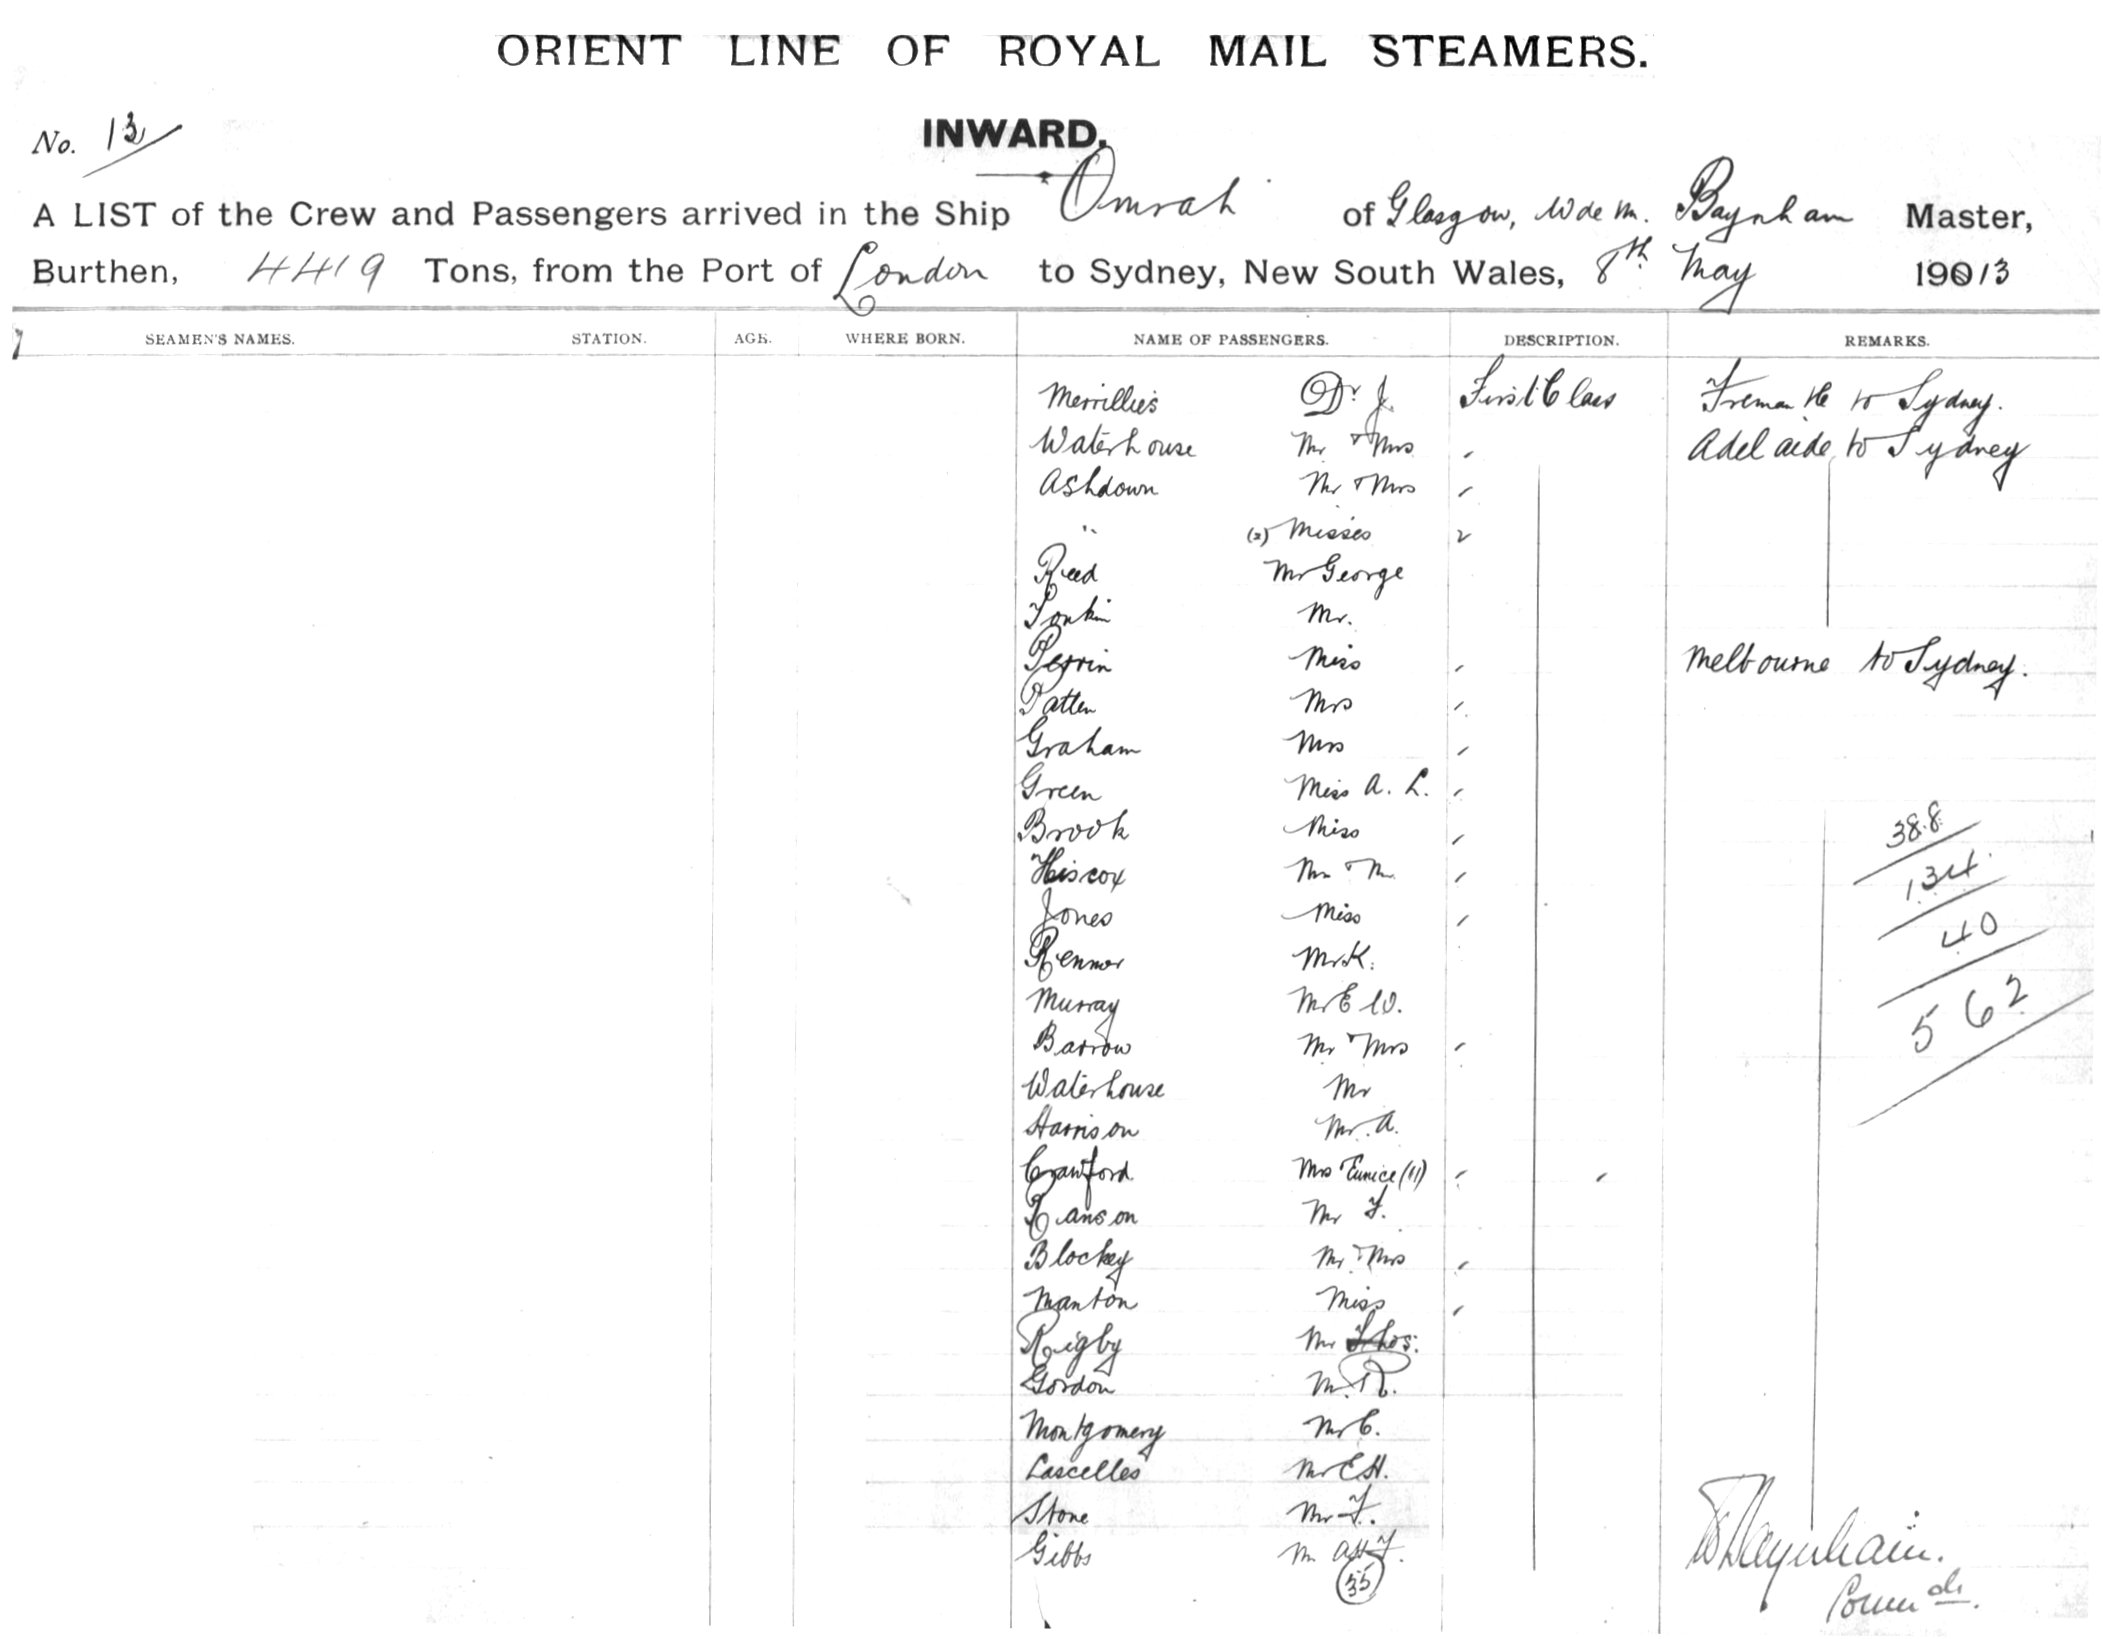 ORIENT LINE OF ROYAL MAIL STEAMERS.
No. 13
INWARD.
A LIST of the Crew and Passengers arrived in the Ship Omrah of Glasgow, W de M. Baynham Master,
Burthen, 4419 Tons, from the Port of London to Sydney, New South Wales, 8th May 1913
SEAMEN'S NAMES. STATION. AGE. WHERE BORN. NAME OF PASSENGERS. DESCRIPTION. REMARKS.
Dr J. First Class Fremantle to Sydney.
Waterhouse Mr & Mrs Adelaide to Sydney
Ashdown Mr & Mrs
" (2) Misses
Reed Mr George
Tonkin Mr.
Perrin Miss Melbourne to Sydney.
Patten Mrs
Graham Mrs
Green Miss A. L.
Brook Miss 388
Hiscox 134
Jones Miss 40
Mr K.
Murray Mr E W. 562
Barrow Mr & Mrs
Waterhouse Mr
Harrison Mr. A.
Crawford Mrs Eunice (11)
Ranson Mr F.
Blockey Mr & Mrs
Manton Miss
Rigby Mr Thos.
Gordon M. R.
Montgomery Mr C.
Lascelles Mr E H.
Stone Mr F.
Gibbs M
35
Baynham.